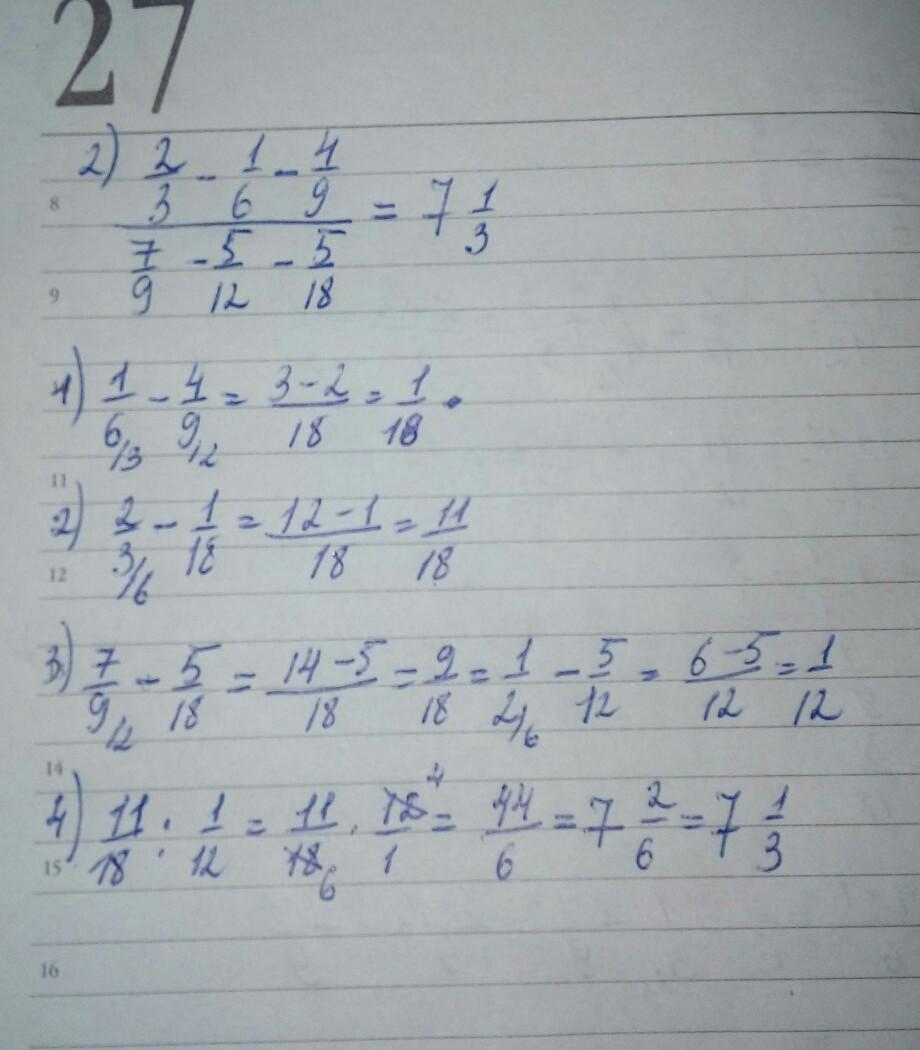 27
2) 2/3 - 1/6 - 1/9
8 = 7 1/3
7/9 - 5/12 - 5/18
9
1) 1/6/3 - 1/9/2 = 3-2/18 = 1/18
11
2) 2/3/6 - 1/18 = 12-1/18 = 11/18
12
3) 7/9/2 - 5/18 = 14-5/18 = 9/18 = 1/2/6 - 5/12 = 6-5/12 = 1/12
14
4) 11/18 : 1/12 = 11/18 6 · 12 4/1 = 44/6 = 7 2/6 = 7 1/3
15
16